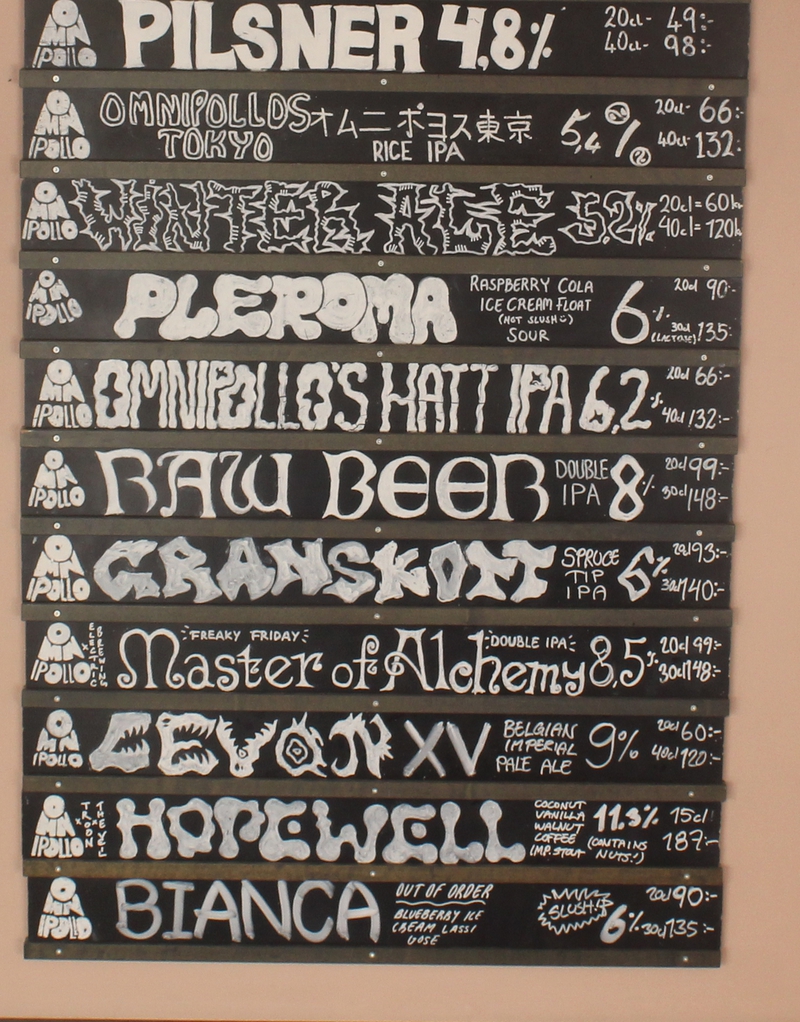 OMNIPOLLO PILSNER 4,8% 20cl- 49:-
40cl- 98:-
OMNIPOLLO OMNIPOLLOS オムニポヨス東京 5,4% 20cl- 66:-
TOKYO RICE IPA 40cl- 132:-
OMNIPOLLO WINTER ALE 5,2% 20cl = 60kr
40cl = 120kr
OMNIPOLLO PLEROMA RASPBERRY COLA 6% 20cl 90:-
ICE CREAM FLOAT
(NOT SLUSH☺) 30cl 135:-
SOUR (LACTOSE)
OMNIPOLLO OMNIPOLLO'S HATT IPA 6,2% 20cl 66:-
40cl 132:-
OMNIPOLLO RAW BEER DOUBLE 8% 20cl 99:-
IPA 30cl 148:-
OMNIPOLLO GRANSKOTT SPRUCE 6% 20cl 93:-
TIP
IPA 30cl 140:-
OMNIPOLLO x ELECTRIC BREWING FREAKY FRIDAY DOUBLE IPA
Master of Alchemy 8,5% 20cl 99:-
30cl 148:-
OMNIPOLLO XV BELGIAN 9% 20cl 60:-
IMPERIAL
PALE ALE 40cl 120:-
OMNIPOLLO x TROON x THE VEIL HOPEWELL COCONUT 11.3% 15cl
VANILLA
WALNUT
COFFEE (CONTAINS 187:-
IMP. STOUT NUTS!)
OMNIPOLLO BIANCA OUT OF ORDER SLUSH 20cl 90:-
BLUEBERRY ICE 6% 30cl 135:-
CREAM LASSI
GOSE